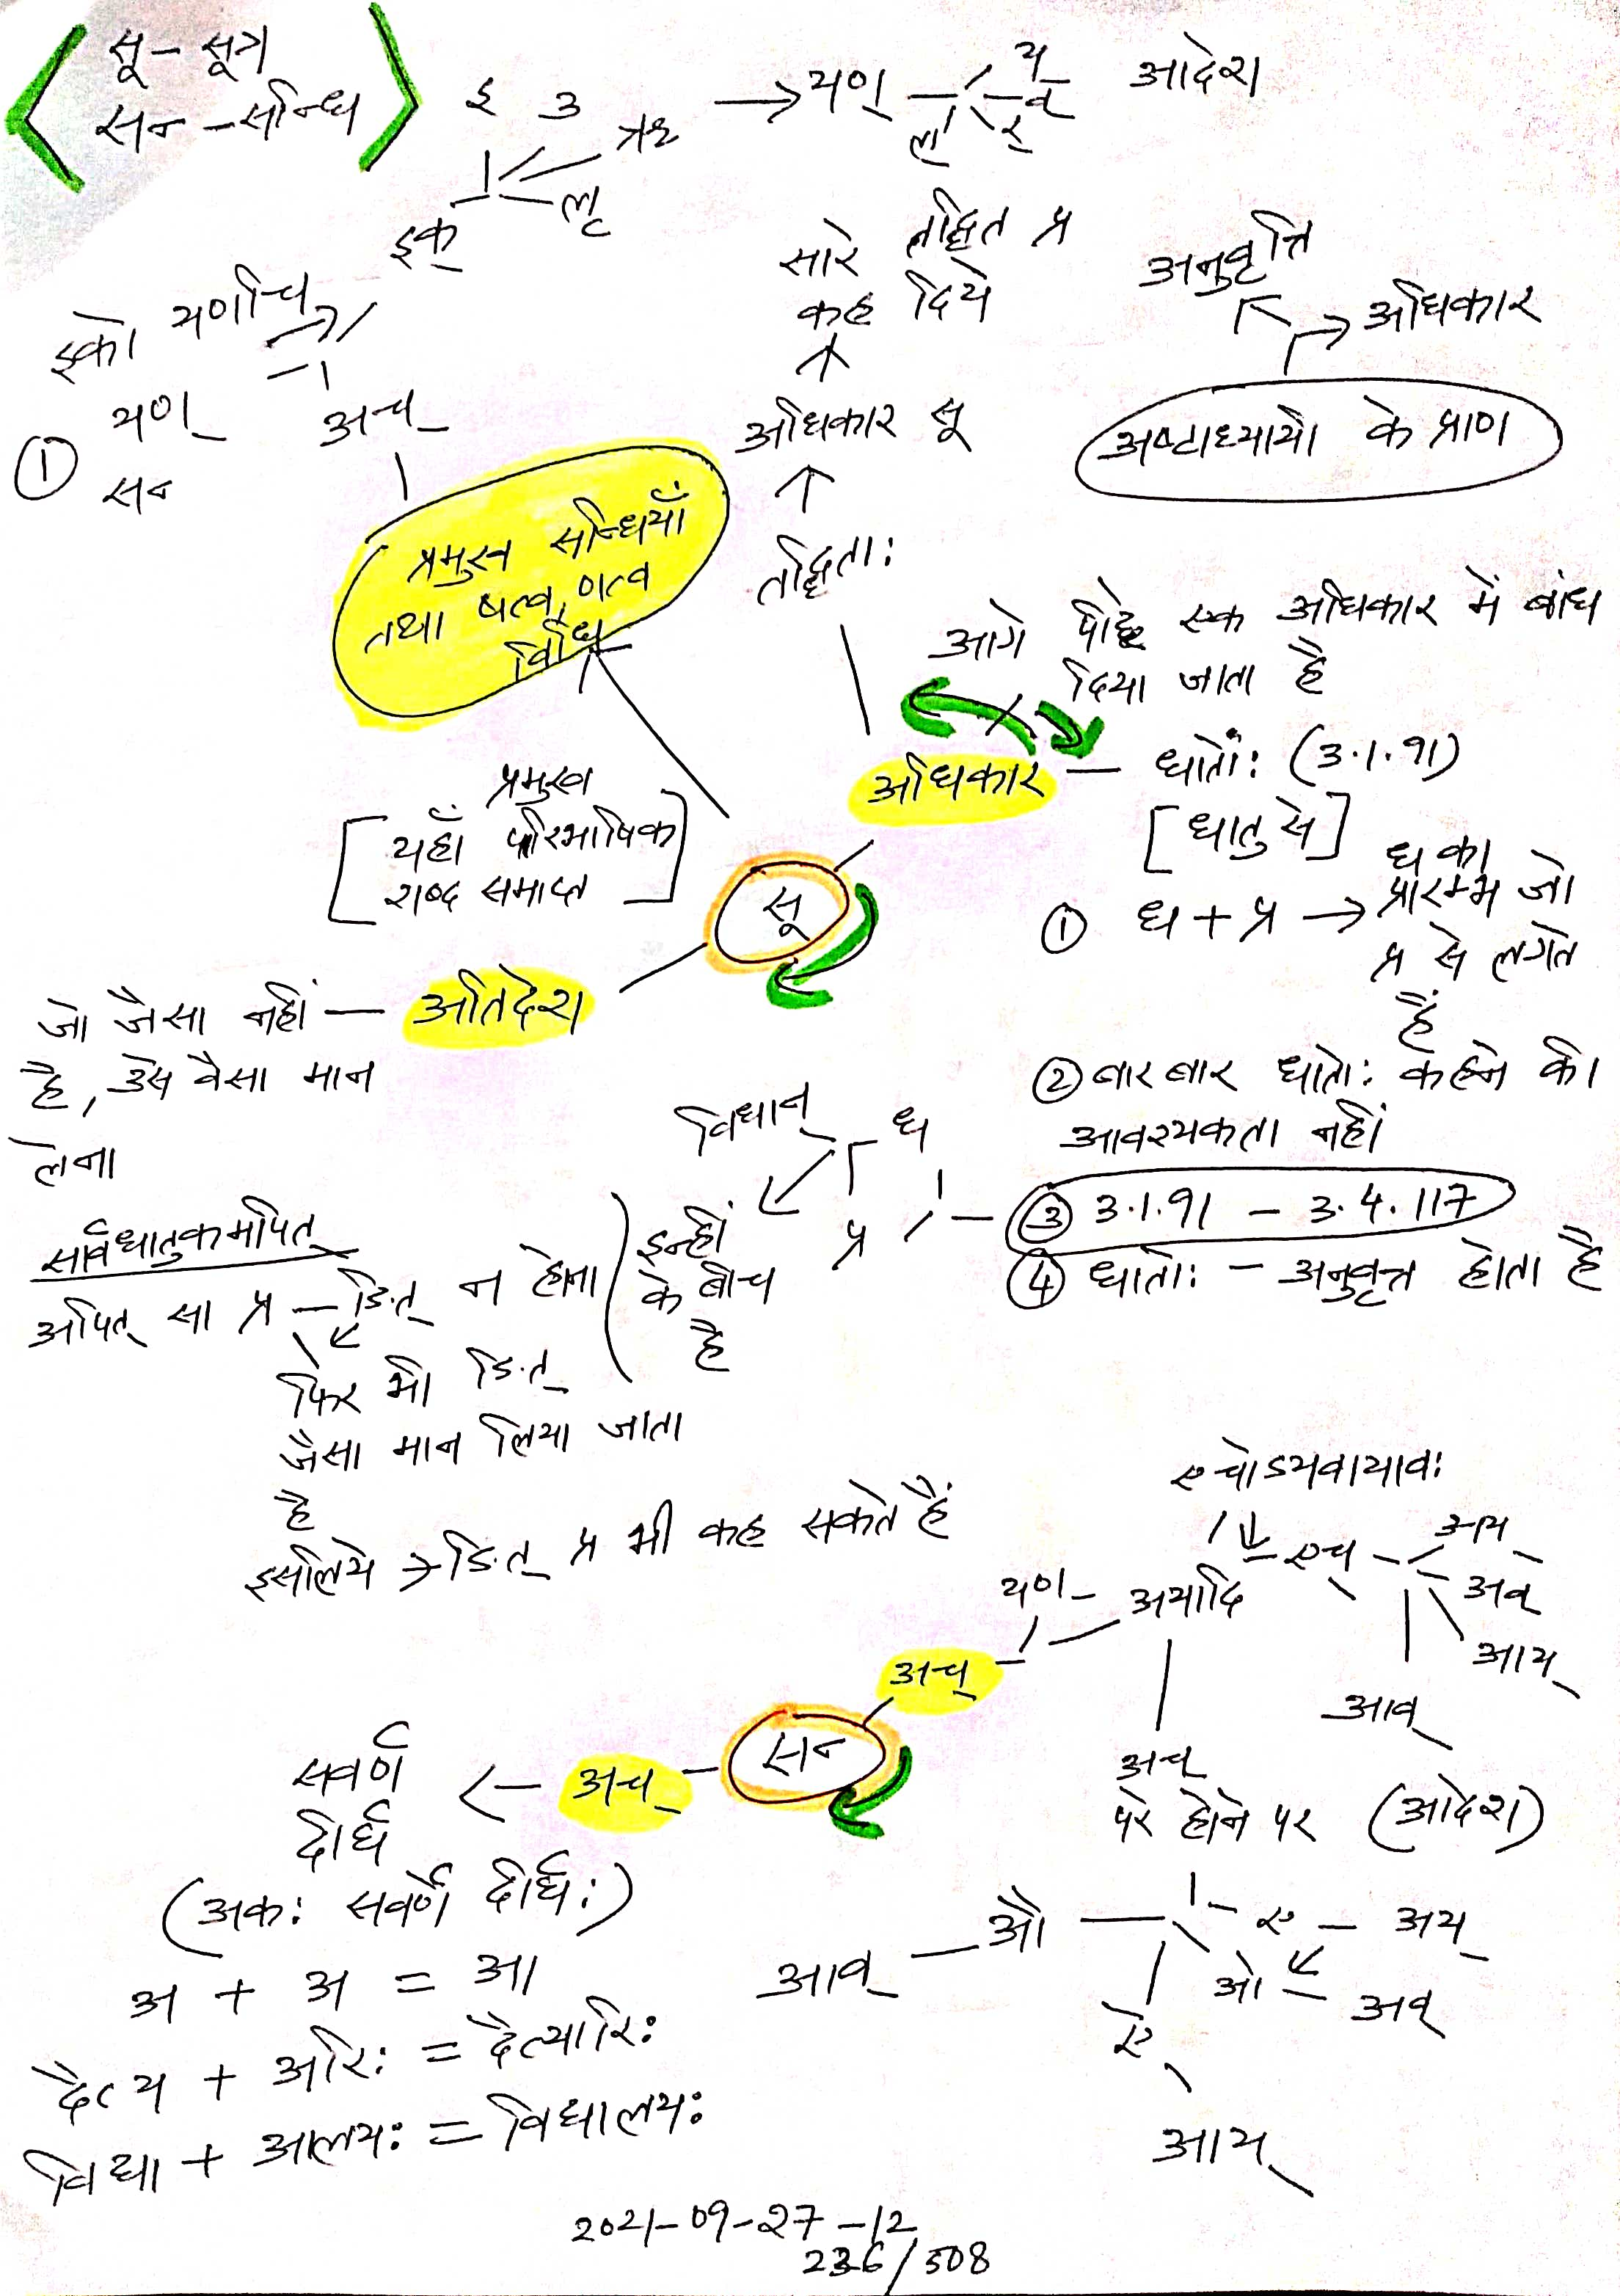 सू – सूत्र
सन – सन्धि
इ उ ऋ लृ
इक्
→ यण् – य् व् र् ल् आदेश
इको यणचि
यण् अच्
① सन
प्रमुख सन्धियाँ
तथा षत्व, णत्व
विधि
सारे तद्धित प्र
कह दिये
अधिकार सू
तद्धिताः
अनुवृत्ति
→ अधिकार
अष्टाध्यायी के प्राण
आगे पीछे एक अधिकार में बांध
दिया जाता है
अधिकार – धातोः (3.1.91)
[धातु से]
① ध + प्र → ध का
प्रारम्भ जो
प्र से लगते
हैं
② बार बार धातोः कहने की
आवश्यकता नहीं
③ 3.1.91 – 3.4.117
④ धातोः – अनुवृत्त होता है
विधान्
ध
प्र
इन्हीं
के बीच
है
प्रमुख
[यहाँ पारिभाषिक
शब्द समाप्त]
सू
जो जैसा नहीं – अतिदेश
है, उसे वैसा मान
लेना
सार्वधातुकमपित्
अपित् सा प्र – ङित् न होना
फिर भी ङित्
जैसा मान लिया जाता
है
इसलिये → ङित् प्र भी कह सकते हैं
एचोऽयवायावः
यण् – अयादि – एच् – अय्
अव्
आय्
आव्
अच्
सन
अच्
परे होने पर (आदेश)
ए – अय्
ओ – अव्
आव् – औ
ऐ
आय्
सवर्ण ← अच्
दीर्घ
(अकः सवर्णे दीर्घः)
अ + अ = आ
दैत्य + अरिः = दैत्यारिः
विद्या + आलयः = विद्यालयः
2021-09-27-12
236/508